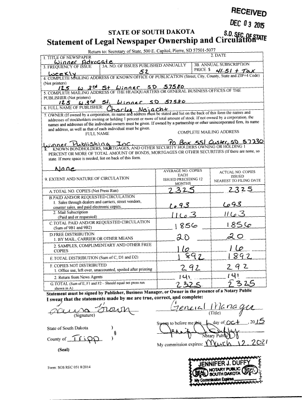 RECEIVED
DEC 03 2015
S.D. SEC. OF STATE
STATE OF SOUTH DAKOTA
Statement of Legal Newspaper Ownership and Circulation
Return to: Secretary of State, 500 E. Capitol, Pierre, SD 57501-5077
1. TITLE OF NEWSPAPER
Winner Advocate
2. DATE
3. FREQUENCY OF ISSUE
Weekly
3A. NO. OF ISSUES PUBLISHED ANNUALLY
52
3B. ANNUAL SUBSCRIPTION
PRICE $ 41.51 + Tax
4. COMPLETE MAILING ADDRESS OF KNOWN OFFICE OF PUBLICATION (Street, City, County, State and ZIP+4 Code)
(Not printers)
125 W 3rd St Winner SD 57580
5. COMPLETE MAILING ADDRESS OF THE HEADQUARTERS OF GENERAL BUSINESS OFFICES OF THE
PUBLISHER (Not printer)
125 W 3rd St, Winner SD 57580
6. FULL NAME OF PUBLISHER: Charles Najacht
7. OWNER (If owned by a corporation, its name and address must be stated and list on the back of this form the names and
addresses of stockholders owning or holding 1 percent or more of total amount of stock. If not owned by a corporation, the
names and addresses of the individual owners must be given. If owned by a partnership or other unincorporated firm, its name
and address, as well as that of each individual must be given.
FULL NAME
COMPLETE MAILING ADDRESS
Winner Publishing Inc.
Po Box 551 Custer, SD 57730
8. KNOWN BONDHOLDERS, MORTGAGEES, AND OTHER SECURITY HOLDERS OWNING HOLDING 1
PERCENT OR MORE OF TOTAL AMOUNT OF BONDS, MORTGAGES OR OTHER SECURITIES (If there are none, so
state. If more space is needed, list on back of this form
None
9. EXTENT AND NATURE OF CIRCULATION
AVERAGE NO. COPIES
EACH
ISSUE PRECEDING 12
MONTHS
ACTUAL NO. COPIES
ISSUED
NEAREST TO FILING DATE
A. TOTAL NO. COPIES (Net Press Run)
2325
2325
B. PAID AND/OR REQUESTED CIRCULATION
1. Sales through dealers and carriers, street vendors,
counter sales, and paid electronic copies.
693
693
2. Mail Subscription
(Paid and or requested)
1163
1163
C. TOTAL PAID AND/OR REQUESTED CIRCULATION
(Sum of 9B1 and 9B2)
1856
1856
D. FREE DISTRIBUTION
1. BY MAIL, CARRIER OR OTHER MEANS
20
20
2. SAMPLES, COMPLIMENTARY AND OTHER FREE
COPIES
16
16
E. TOTAL DISTRIBUTION (Sum of C, D1 and D2)
1892
1892
F. COPIES NOT DISTRIBUTED
1. Office use, left over, unaccounted, spoiled after printing
292
292
2. Return from News Agents
141
141
G. TOTAL (Sum of E, F1 and F2 - Should equal net press run
shown in A)
2325
2325
Statement must be signed by Publisher, Business Manager, or Owner in the presence of a Notary Public
I swear that the statements made by me are true, correct, and complete:
General Manager
(Signature)
(Title)
State of South Dakota )
County of Tripp )
(Seal)
day of Oct, 2015
Notary Public
My commission expires: March 12, 2021
JENNIFER J. DUFFY
NOTARY PUBLIC
SOUTH DAKOTA
My Commission Expires